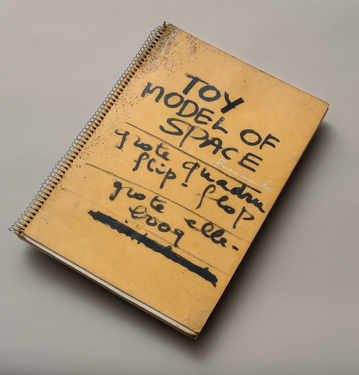 TOY
MODEL OF
SPACE
grote quadru
flip-flop
grote elle-
boog